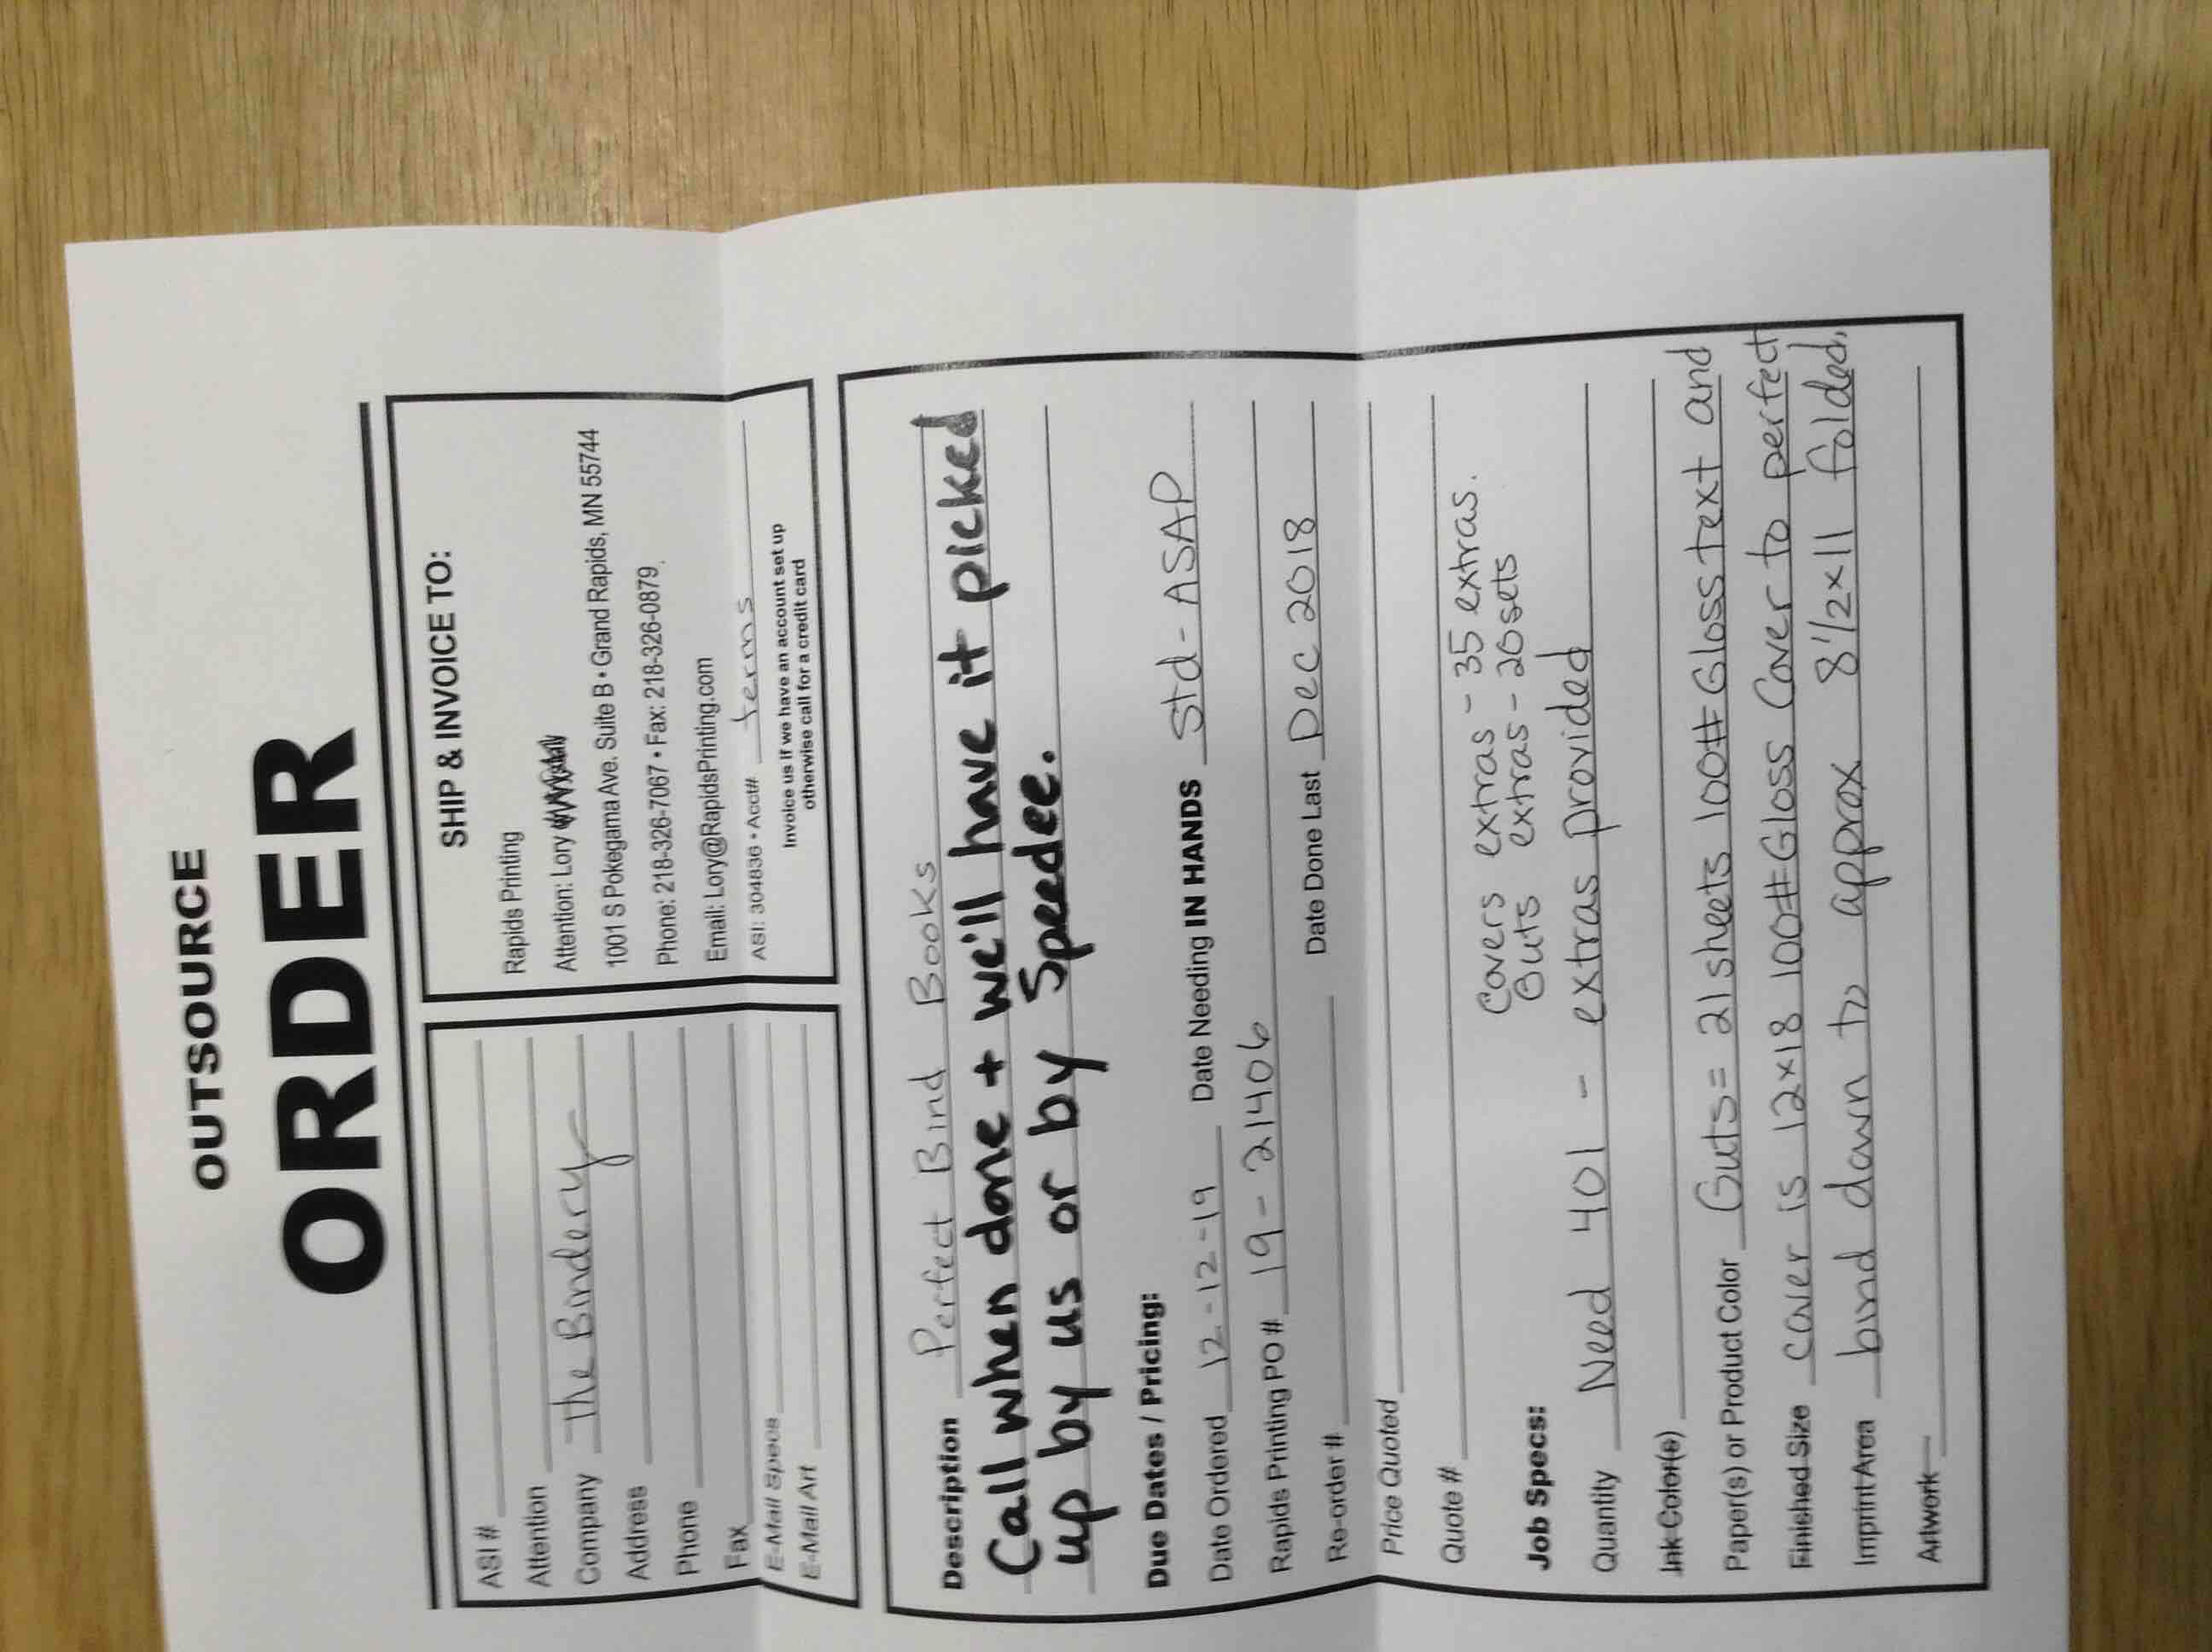 OUTSOURCE
ORDER
ASI #
Attention
Company The Bindery
Address
Phone
Fax
E-Mail Specs
E-Mail Art
SHIP & INVOICE TO:
Rapids Printing
Attention: Lory
1001 S Pokegama Ave. Suite B • Grand Rapids, MN 55744
Phone: 218-326-7067 • Fax: 218-326-0879
Email: Lory@RapidsPrinting.com
ASI: 304836 • Acct# terms
Invoice us if we have an account set up
otherwise call for a credit card
Description Perfect Bind Books
Call when done + we'll have it picked
up by us or by Speedee.
Due Dates / Pricing:
Date Ordered 12-12-19 Date Needing IN HANDS Std - ASAP
Rapids Printing PO # 19 - 21406
Re-order # Date Done Last Dec 2018
Price Quoted
Quote #
Covers extras - 35 extras.
Guts extras - 20 sets
Job Specs:
Quantity Need 401 - extras provided
Ink Color(s)
Paper(s) or Product Color Guts = 21 sheets 100# Gloss text and
Finished Size cover is 12x18 100# Gloss Cover to perfect
Imprint Area bind down to approx 8 1/2 x 11 folded.
Artwork